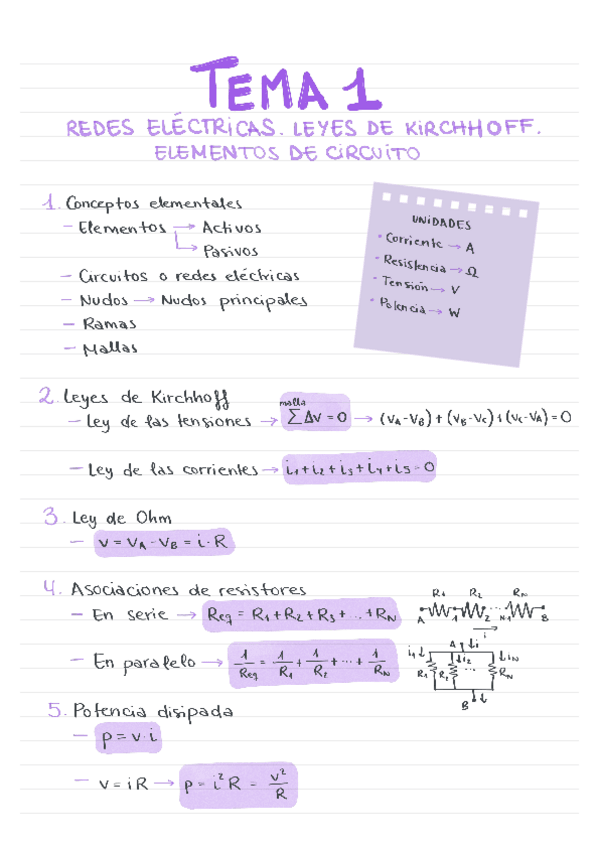 TEMA 1
REDES ELÉCTRICAS. LEYES DE KIRCHHOFF.
ELEMENTOS DE CIRCUITO
1. Conceptos elementales
– Elementos → Activos
→ Pasivos
– Circuitos o redes eléctricas
– Nudos → Nudos principales
– Ramas
– Mallas
UNIDADES
• Corriente → A
• Resistencia → Ω
• Tensión → V
• Potencia → W
2. Leyes de Kirchhoff
malla
– Ley de las tensiones → ∑ Δv = 0 → (VA - VB) + (VB - VC) + (VC - VA) = 0
– Ley de las corrientes → i1 + i2 + i3 + i4 + i5 = 0
3. Ley de Ohm
– v = VA - VB = i · R
4. Asociaciones de resistores
– En serie → Req = R1 + R2 + R3 + ... + RN
R1 R2 RN
A 1 2 N-1 B
i
– En paralelo → 1/Req = 1/R1 + 1/R2 + ... + 1/RN
A i
i1 i2 iN
R1 R2 ... RN
B i
5. Potencia disipada
– p = v · i
– v = i R → p = i² R = v²/R